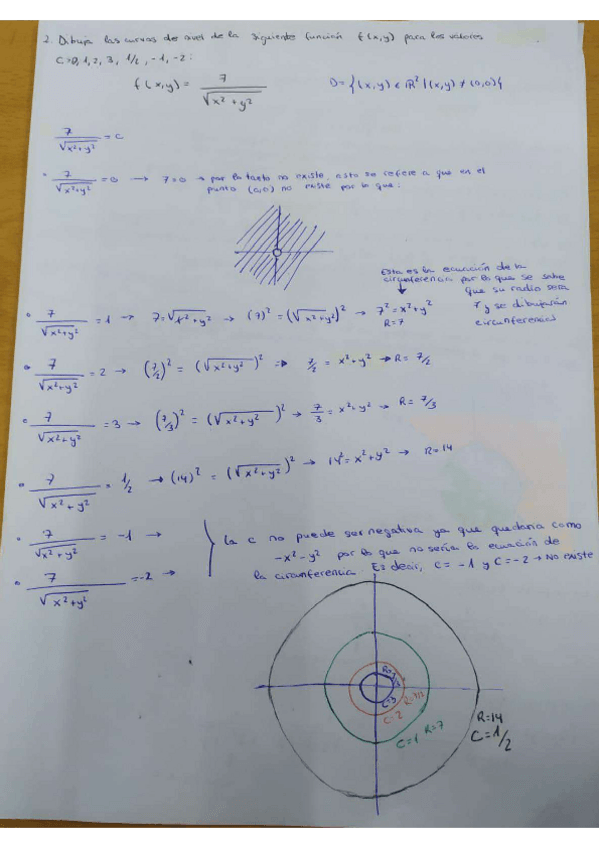 2. Dibuja las curvas de nivel de la siguiente función f(x,y) para los valores
C=0, 1, 2, 3, 1/2, -1, -2:
f(x,y) = 7/√(x²+y²)   D = {(x,y) ∈ ℝ² | (x,y) ≠ (0,0)}
7/√(x²+y²) = c
7/√(x²+y²) = 0 → 7=0 → por lo tanto no existe, esto se refiere a que en el
punto (0,0) no existe por lo que:
Esta es la ecuación de la
circunferencia por lo que se sabe
que su radio sera
7 y se dibutarán
circunferencias
7/√(x²+y²) = 1 → 7=√(x²+y²) → (7)² = (√(x²+y²))² → 7² = x²+y²
R=7
7/√(x²+y²) = 2 → (7/2)² = (√(x²+y²))² → 7/2 = x²+y² → R= 7/2
7/√(x²+y²) = 3 → (7/3)² = (√(x²+y²))² → 7/3 = x²+y² → R= 7/3
7/√(x²+y²) = 1/2 → (14)² = (√(x²+y²))² → 14² = x²+y² → R=14
7/√(x²+y²) = -1 →
7/√(x²+y²) = -2 →
la c no puede ser negativa ya que quedaria como
-x²-y² por lo que no sería la ecuación de
la circunferencia. Es decir, C= -1 y C=-2 → No existe
C=3
C=2
C=1 R=7
R=14
C=1/2